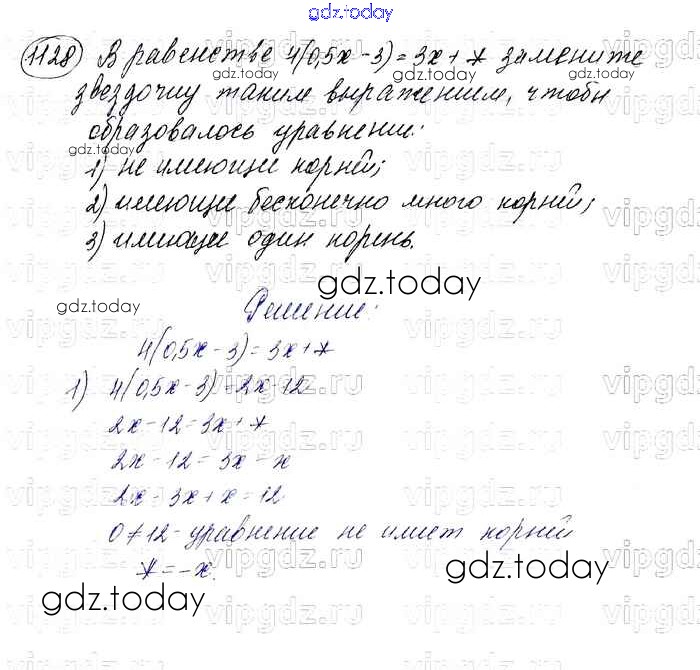 gdz.today
1128) В равенстве 4(0,5x - 3) = 3x + * замените
gdz.today gdz.today gdz.today
звездочку таким выражением, чтобы
образовалось уравнение:
gdz.today
1) не имеющие корней;
2) имеющие бесконечно много корней;
3) имеющие один корень.
gdz.today
gdz.today
gdz.today
Решение:
4(0,5x - 3) = 3x + *
1) 4(0,5x - 3) = 2x - 12
2x - 12 = 3x + *
2x - 12 = 3x - x
2x - 3x + x = 12
0 ≠ 12 - уравнение не имеет корней
* = -x.
gdz.today
gdz.today
gdz.today
vipgdz.ru